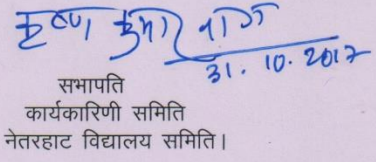 कृष्ण कुमार नाग
31.10.2017
सभापति
कार्यकारिणी समिति
नेतरहाट विद्यालय समिति।